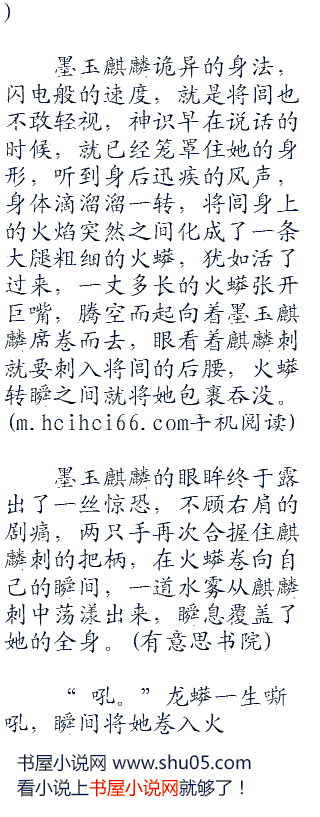 )
墨玉麒麟诡异的身法，
闪电般的速度，就是将闾也
不敢轻视，神识早在说话的
时候，就已经笼罩住她的身
形，听到身后迅疾的风声，
身体滴溜溜一转，将闾身上
的火焰突然之间化成了一条
大腿粗细的火蟒，犹如活了
过来，一丈多长的火蟒张开
巨嘴，腾空而起向着墨玉麒
麟席卷而去，眼看着麒麟刺
就要刺入将闾的后腰，火蟒
转瞬之间就将她包裹吞没。
(m.hcihci66.com手机阅读)
墨玉麒麟的眼眸终于露
出了一丝惊恐，不顾右肩的
剧痛，两只手再次合握住麒
麟刺的把柄，在火蟒卷向自
己的瞬间，一道水雾从麒麟
刺中荡漾出来，瞬息覆盖了
她的全身。(有意思书院)
“ 吼。”龙蟒一生嘶
吼，瞬间将她卷入火
书屋小说网 www.shu05.com
看小说上书屋小说网就够了！